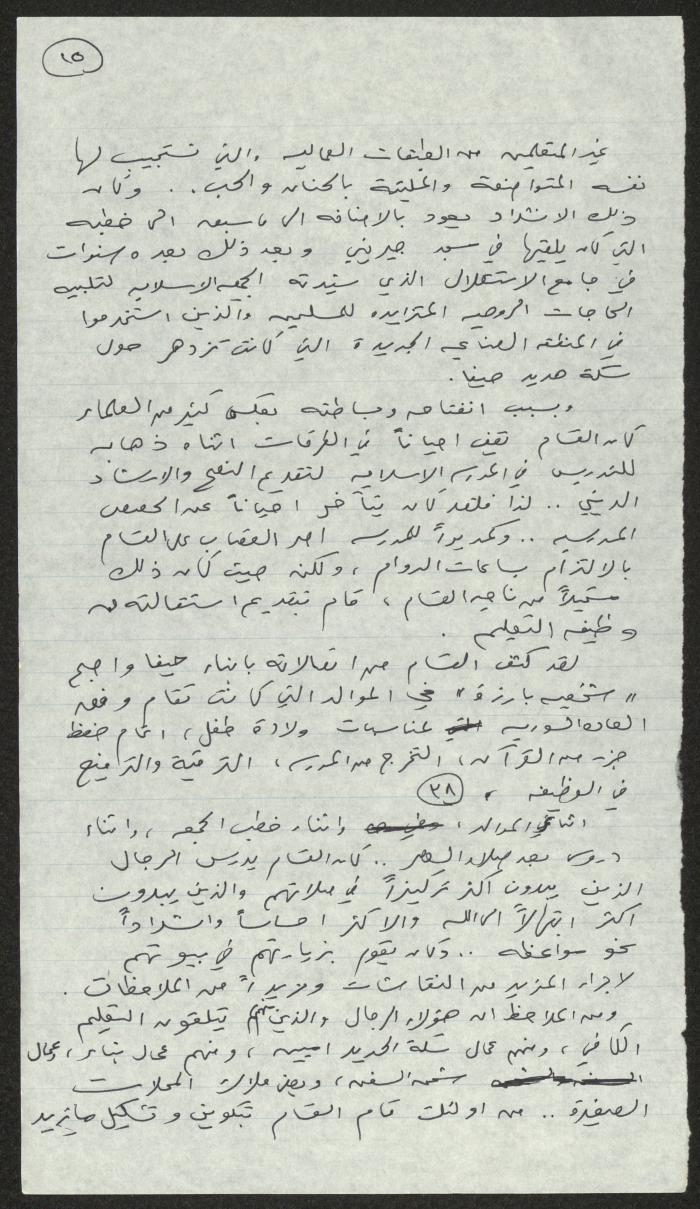 ١٥
غير المتعلمين من الطبقات العماليه والتي تستجيب لها
نفسه المتواضعة والمليئة بالحنان والحب .. وكان
ذلك الانشداد يعود بالاضافه الى ما سبق الى خطبه
التي كان يلقيها في مسجد جيريني وبعد ذلك بعده سنوات
في جامع الاستقلال الذي شيدته الجمعيه الاسلاميه لتلبيه
الحاجات الروحيه المتزايده للمسلمين والذين استخدموا
في المنطقه الصناعيه الجديدة التي كانت تزدهر حول
سكة حديد حيفا .
وبسبب انفتاحه وبساطته بعكس كثير من العلماء
كان القسام يقف احياناً في الطرقات اثناء ذهابه
للتدريس في المدرسه الاسلاميه لتقديم النصح والارشاد
الديني .. لذا فلقد كان يتأخر احياناً عن الحصص
المدرسيه .. وكمديراً للمدرسه اصر القصاب على القسام
بالالتزام بساعات الدوام ، ولكن حيث كان ذلك
مستحيلاً من ناحيه القسام ، قام بتقديم استقالته من
وظيفه التعليم .
لقد كثف القسام من اتصالاته بابناء حيفا واصبح
" شخصيه بارزة " في الموالد التي كانت تقام وفق
العاده السوريه لمناسبات ولادة طفل ، اتمام حفظ
جزء من القرآن ، التخرج من المدرسه ، الترقية والترفيع
في الوظيفه . ٣٨
اثناء الموالد ، واثناء خطب الجمعه ، واثناء
دروس بعد صلاه العصر .. كان القسام يدرس الرجال
الذين يبدون اكثر تركيزاً في صلاتهم والذين يبدون
اكثر ابتهالاً الى الله والاكثر احساساً وانشداداً
نحو مواعظه .. وكان يقوم بزيارتهم في بيوتهم
لاجراء المزيد من النقاشات ومزيداً من الملاحظات .
ومن الملاحظ ان هؤلاء الرجال والذين يتلقون التعليم
الكافي ، ومنهم عمال سكة الحديد اميين ، ومنهم عمال بناء ، وعمال
شحن السفن ، وبعض ملاك المحلات
الصغيرة .. من اولئك قام القسام بتكوين وتشكيل ما يزيد